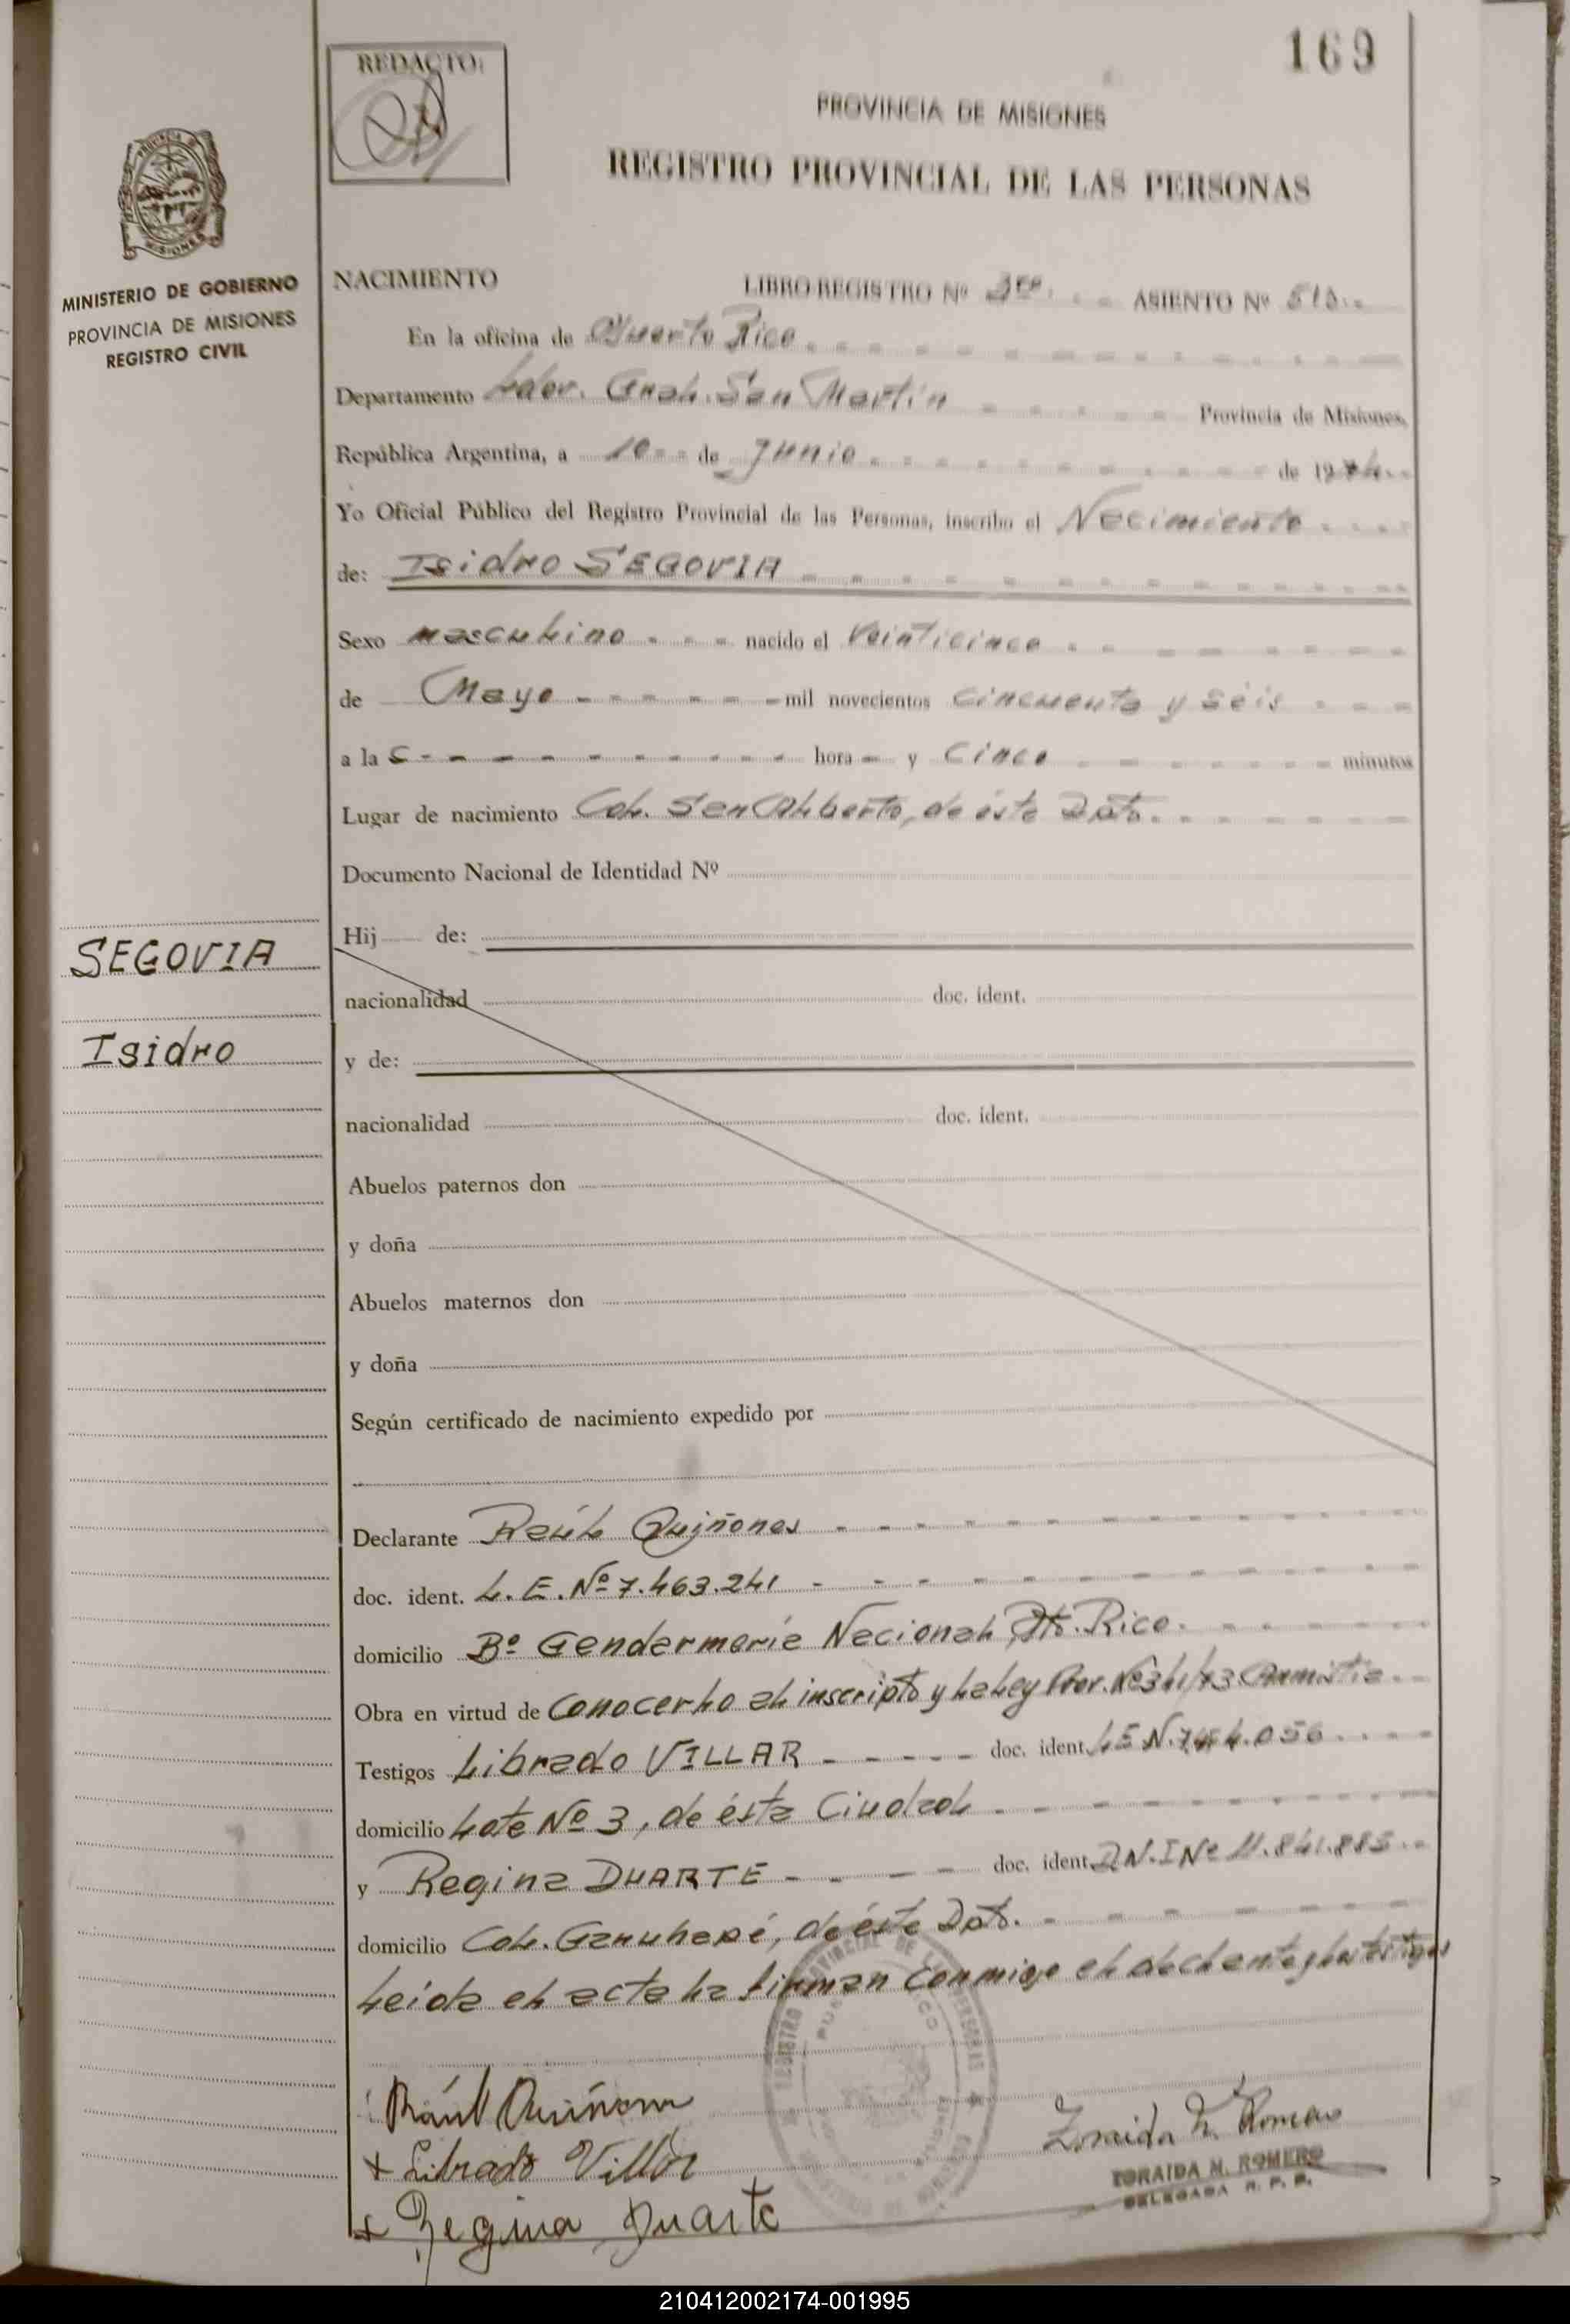 169
REDACTO:
PROVINCIA DE MISIONES
REGISTRO PROVINCIAL DE LAS PERSONAS
PROVINCIA DE
MISIONES
MINISTERIO DE GOBIERNO
PROVINCIA DE MISIONES
REGISTRO CIVIL
NACIMIENTO LIBRO REGISTRO Nº 3ro. ASIENTO Nº
En la oficina de Puerto Rico
Departamento Ldor. Gral. San Martín Provincia de Misiones,
República Argentina, a 10 de Junio de 19
Yo Oficial Público del Registro Provincial de las Personas, inscribo el Nacimiento
de: Isidro SEGOVIA
Sexo masculino nacido el Veinticinco
de Mayo mil novecientos cincuenta y seis
a la s hora y Cinco minutos
Lugar de nacimiento Col. San Alberto, de éste Dpto.
Documento Nacional de Identidad Nº
SEGOVIA
Isidro
Hij de:
nacionalidad doc. ident.
y de:
nacionalidad doc. ident.
Abuelos paternos don
y doña
Abuelos maternos don
y doña
Según certificado de nacimiento expedido por
Declarante Raúl Quiñones
doc. ident. L.E. Nº 7.463.241
domicilio Bº Gendarmería Nacional, Pto. Rico.
Obra en virtud de conocerlo al inscripto y la Ley Prov. Nº 341/73 Amnistia
Testigos Librado VILLAR doc. ident. L.E N.
domicilio Lote Nº 3, de ésta Ciudad
y Regina DUARTE doc. ident. D.N.I Nº 11.841.885
domicilio Col. Garuhapé, de éste Dpto.
Leida el acta la firman conmigo el declante y los testigos
Raúl Quiñones
+ Librado Villar
+ Regina Duarte
REGISTRO PROVINCIAL DE LAS PERSONAS
Zoraida N. Romero
ZORAIDA N. ROMERO
DELEGADA R. P. P.
210412002174-001995